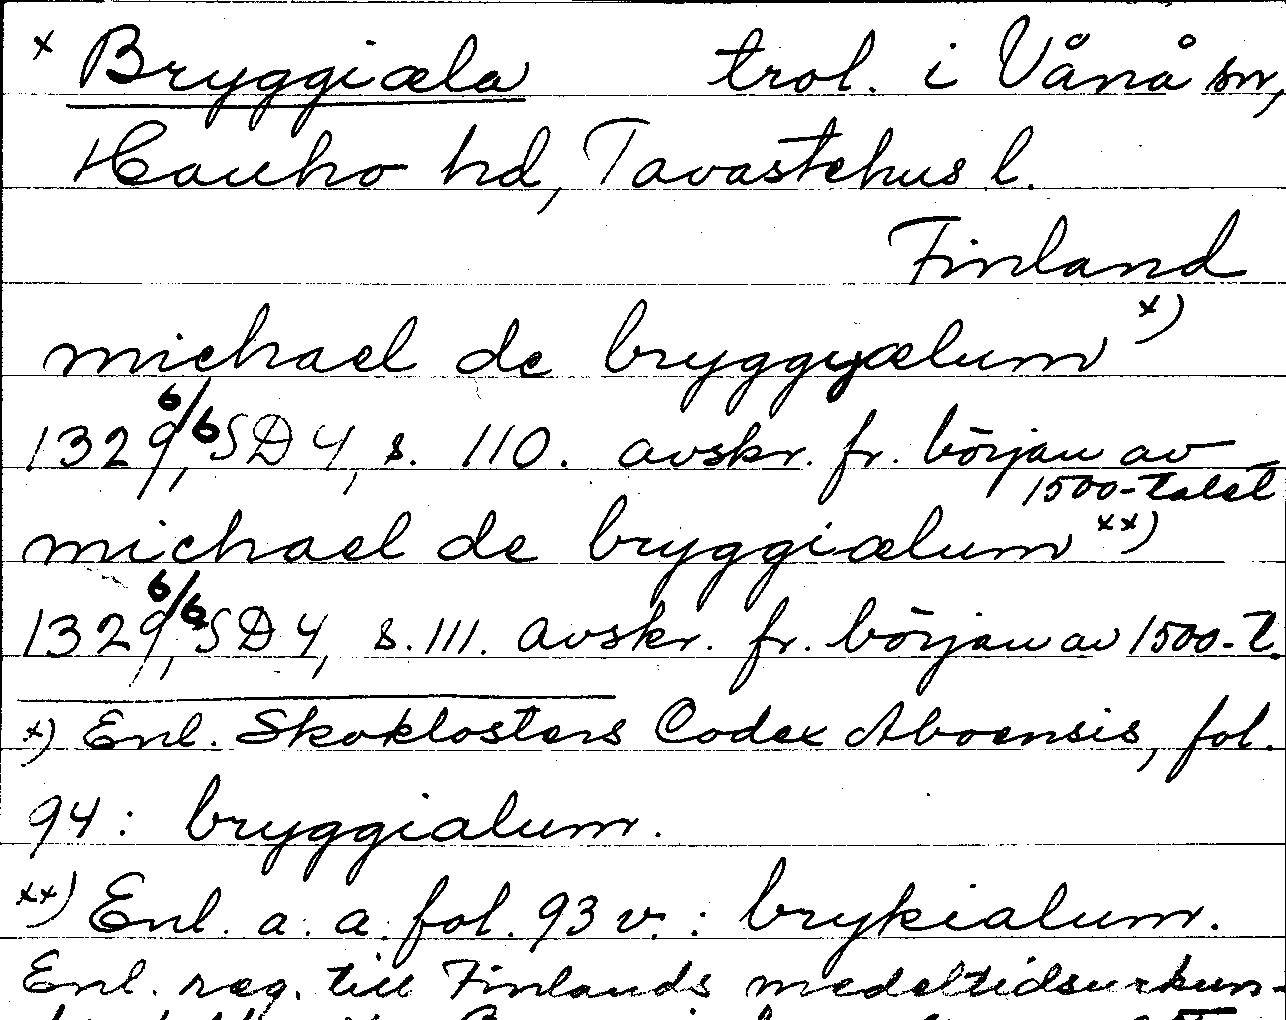 x Bryggiæla trol. i Vånå sn,
Hauho hd, Tavastehus l.
Finland
michael de bryggyælum x)
1329 6/6, SD 4, s. 110. avskr. fr. början av
1500-talet
michael de bryggiælum xx)
1329 6/6, SD 4, s. 111. avskr. fr. början av 1500-t.
x) Enl. Skoklosters Codex Aboensis, fol.
94: bryggialum.
xx) Enl. a. a. fol. 93 v.: brykialum.
Enl. reg. till Finlands medeltidsurkun-